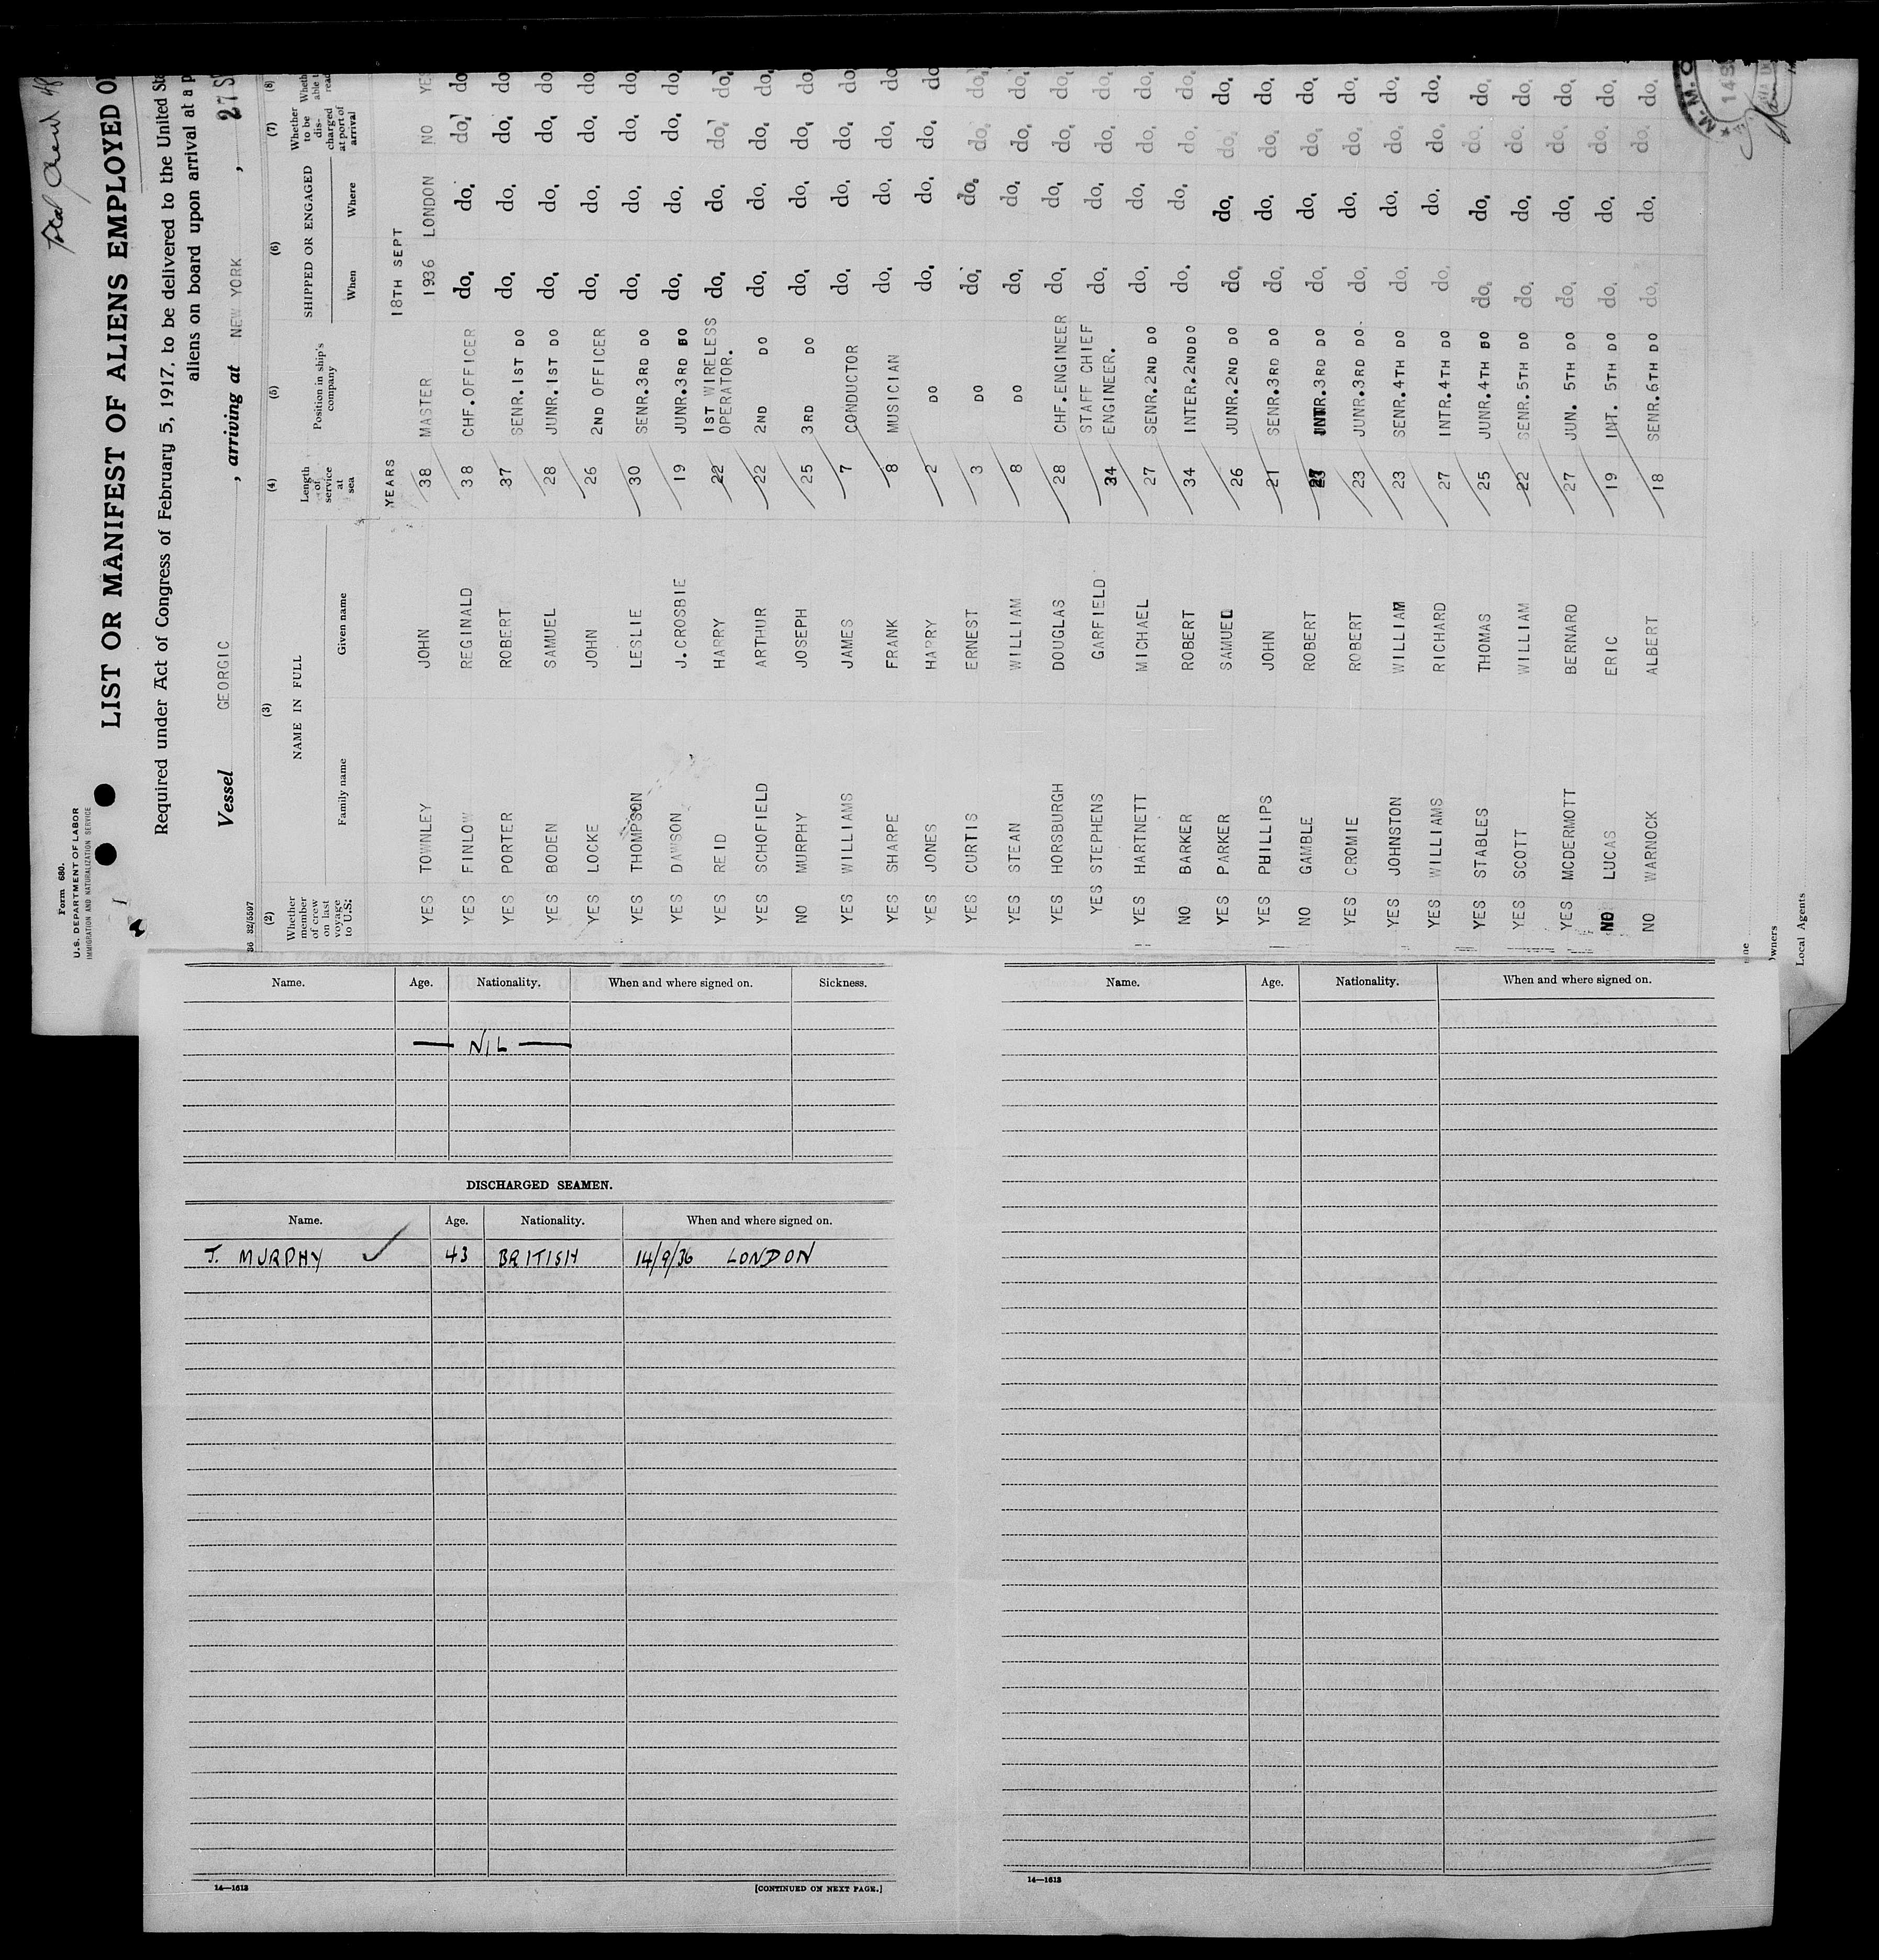 Form 680.
U.S. DEPARTMENT OF LABOR
IMMIGRATION AND NATURALIZATION SERVICE
LIST OR MANIFEST OF ALIENS EMPLOYED
Required under Act of Congress of February 5, 1917, to be delivered to the United
aliens on board upon arrival at a
Vessel GEORGIC , arriving at NEW YORK , 27
36 32/5597
(2) Whether member of crew on last voyage to U.S: (3) NAME IN FULL Family name Given name (4) Length of service at sea (5) Position in ship's company (6) SHIPPED OR ENGAGED When Where (7) Whether to be dis-charged at port of arrival (8)
YEARS 18TH SEPT
YES TOWNLEY JOHN 38 MASTER 1936 LONDON NO YES
YES FINLOW REGINALD 38 CHF.OFFICER do. do. do. do
YES PORTER ROBERT 37 SENR.1ST DO do. do. do. do
YES BODEN SAMUEL 28 JUNR.1ST DO do. do. do. do.
YES LOCKE JOHN 26 2ND OFFICER do. do. do. do.
YES THOMPSON LESLIE 30 SENR.3RD DO do. do. do. do.
YES DAWSON J.CROSBIE 19 JUNR.3RD DO do. do. do. do.
YES REID HARRY 22 1ST WIRELESS OPERATOR. do. do. do. do.
YES SCHOFIELD ARTHUR 22 2ND DO do. do. do. do.
NO MURPHY JOSEPH 25 3RD DO do. do. do. do.
YES WILLIAMS JAMES 7 CONDUCTOR do. do. do. do
YES SHARPE FRANK 8 MUSICIAN do. do. do. do
YES JONES HARRY 2 DO do. do. do. do
YES CURTIS ERNEST 3 DO do. do. do. do.
YES STEAN WILLIAM 8 DO do. do. do. do.
YES HORSBURGH DOUGLAS 28 CHF.ENGINEER do. do. do. do.
YES STEPHENS GARFIELD 34 STAFF CHIEF ENGINEER. do. do. do. do.
YES HARTNETT MICHAEL 27 SENR.2ND DO do. do. do. do.
NO BARKER ROBERT 34 INTER.2ND DO do. do. do. do.
YES PARKER SAMUEL 26 JUNR.2ND DO do. do. do. do.
YES PHILLIPS JOHN 21 SENR.3RD DO do. do. do. do.
NO GAMBLE ROBERT INTR.3RD DO do. do. do. do.
YES CROMIE ROBERT 23 JUNR.3RD DO. do. do. do. do.
YES JOHNSTON WILLIAM 23 SENR.4TH DO do. do. do. do.
YES WILLIAMS RICHARD 27 INTR.4TH DO do. do. do. do.
YES STABLES THOMAS 25 JUNR.4TH DO do. do. do. do.
YES SCOTT WILLIAM 22 SENR.5TH DO do. do. do. do.
YES MCDERMOTT BERNARD 27 JUN. 5TH DO do. do. do. do.
NO LUCAS ERIC 19 INT. 5TH DO do. do. do. do.
NO WARNOCK ALBERT 18 SENR.6TH DO do. do. do. do.
Local Agents
Name. Age. Nationality. When and where signed on. Sickness.
— NIL —
DISCHARGED SEAMEN.
Name. Age. Nationality. When and where signed on.
J. MURPHY 43 BRITISH 14/9/36 LONDON
14—1613 [CONTINUED ON NEXT PAGE.]
Name. Age. Nationality. When and where signed on.
14—1613